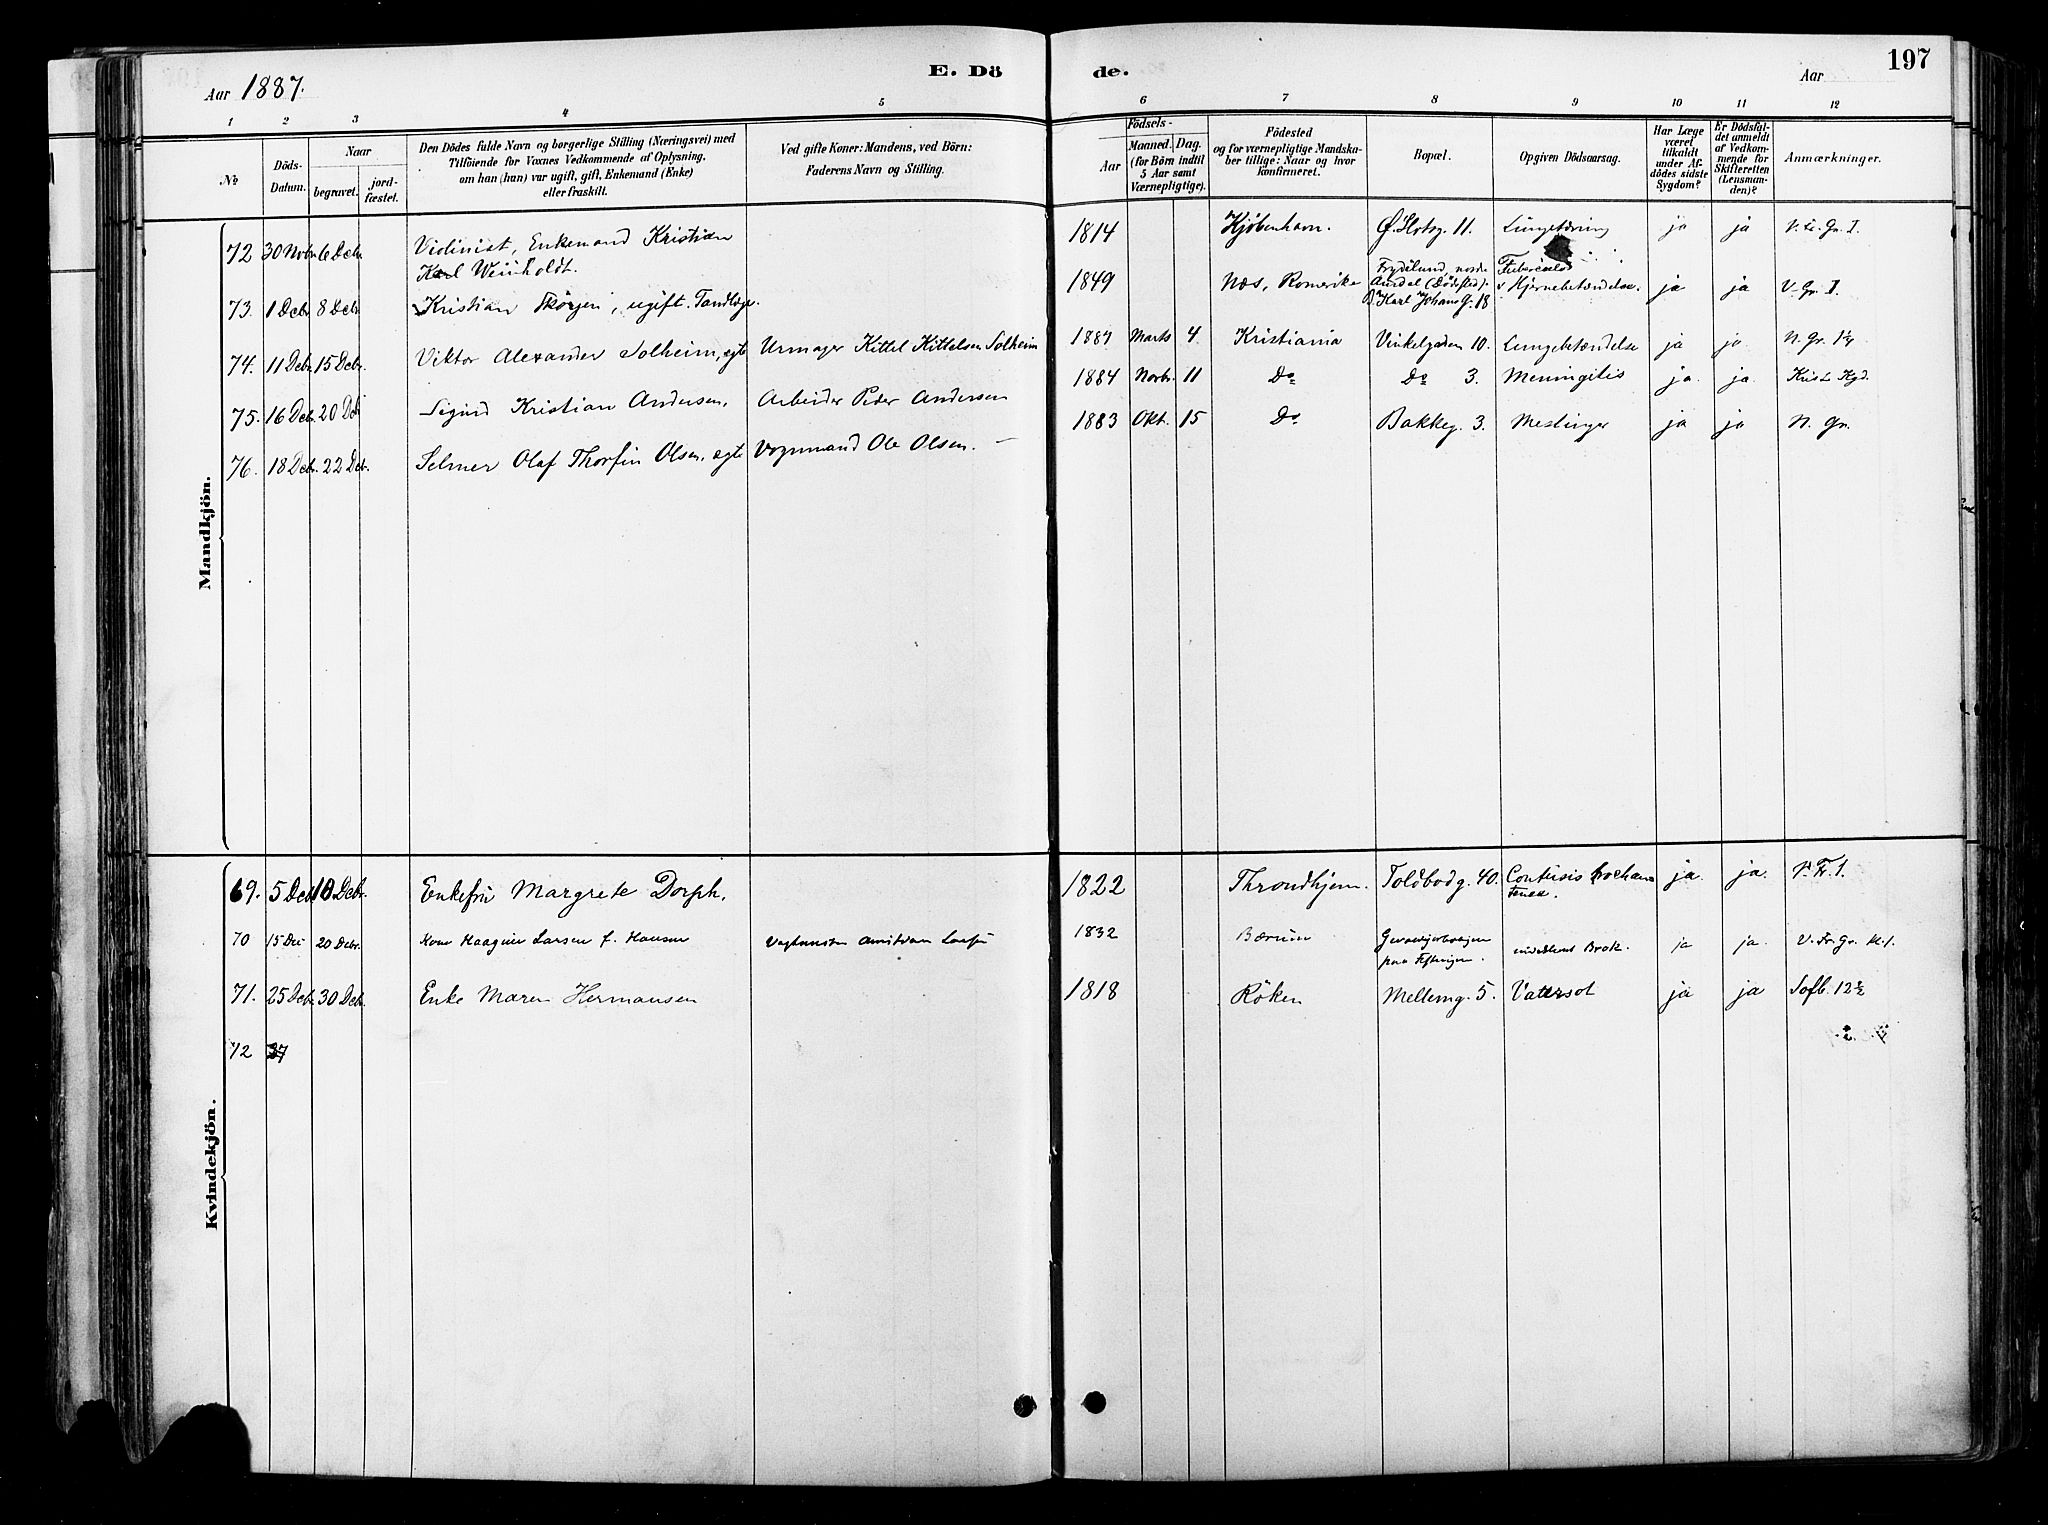 Aar 1887.
E. Dö
de.
Aar
197
1 2 3 4 5 6 7 8 9 10 11 12
No
Döds-Datum.
Naar
begravet.
jord-fæstet.
Den Dödes fulde Navn og borgerlige Stilling (Næringsvei) med
Tilföiende for Voxnes Vedkommende af Oplysning,
om han (hun) var ugift, gift, Enkemand (Enke)
eller fraskilt.
Ved gifte Koner: Mandens, ved Börn:
Faderens Navn og Stilling.
Födsels-
Aar
Maaned. Dag.
(for Börn indtil
5 Aar samt
Værnepligtige).
Födested
og for værnepligtige Mandska-
ber tillige: Naar og hvor
konfirmeret.
Bopæl.
Opgiven Dödsaarsag.
Har Læge
været
tilkaldt
under Af-
dödes sidste
Sygdom?
Er Dödsfal-
det anmeldt
af Vedkom-
mende for
Skifteretten
(Lensman-
den)?
Anmærkninger.
Mandkjön.
72 30 Novbr. 6 Debr. Violinist, Enkemand Kristian
Karl Weinholdt. 1814 Kjöbenhavn. Ö. Slotsg. 11. Lungetæring ja ja
73. 1 Debr. 8 Debr. Kristian Skörjen, ugift. Tandlæge. 1849 Næs, Romerike Frydelund, nordre
Aurdal (Dödsted).
B. Karl Johans G. 18 Hjernebetændelse. ja ja V. Gr. I.
74. 11 Debr. 15 Debr. Viktor Alexander Solheim, egte Urmager Kittel Kittelsen Solheim 1887 Marts 4. Kristiania Vinkelgaden 10. Lungebetændelse ja ja. N. Gr.
75. 16 Debr. 20 Debr Sigurd Kristian Andersen, Arbeider Peder Andersen 1884 Novbr. 11 Do Do 3. Meningitis ja. ja. Krist. Kgd.
76. 18 Debr. 22 Debr. Selmer Olaf Thorfin Olsen, egte Vognmand Ole Olsen. – 1883 Okt. 15 Do Bakkeg. 3. Meslinger ja ja N. Gr.
Kvindekjön.
69. 5 Debr 10 Debr. Enkefru Margrete Dorph. 1822 Throndhjem. Toldbodg. 40. Contusis trochan
ja ja. V. Fr. 1.
70 15 De 20 Debr. Kone Larsen f. Hansen 1832 Bærum
paa Festningen. indeklemt Brok. ja ja. V. Fr. Gr. kl. 1.
71. 25 Debr. 30 Debr. Enke Maren Hermansen 1818 Röken Mellemg. 5. Vattersot ja ja Sofb. 12 ½
72 27